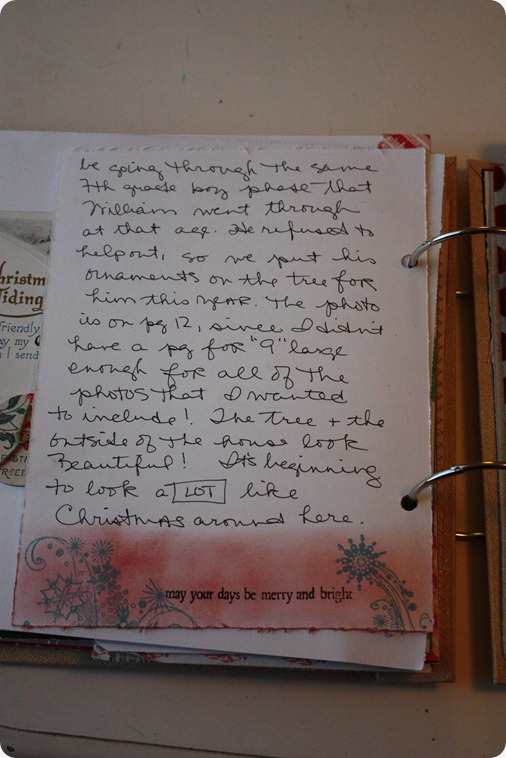 be going through the same
7th grade boy phase that
William went through
at that age. He refused to
help out, so we put his
ornaments on the tree for
him this year. The photo
is on pg 12, since I didn't
have a pg for "9" large
enough for all of the
photos that I wanted
to include! The tree + the
outside of the house look
Beautiful! It's beginning
to look a LOT like
Christmas around here.
may your days be merry and bright
Christm
Tiding
friendly
ay my
I send